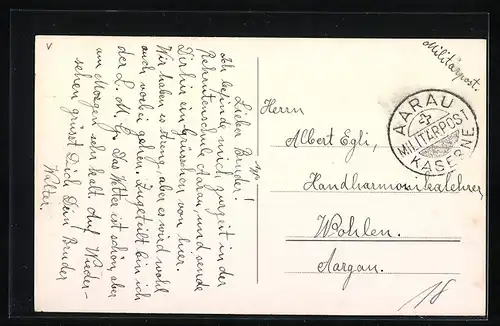 Lieber Bruder!
Ich befinde mich zurzeit in der
Rekrutenschule Aarau, und sende
Dir hier ein Grüsschen von hier.
Wir haben es streng, aber es wird wohl
auch vorbei gehen. Zugeteilt bin ich
der L. M. G. Das Wetter ist schön, aber
am Morgen sehr kalt. Auf Wieder-
sehen grüsst Dich Dein Bruder
Walter.
Militärpost.
AARAU
MILITÄRPOST
KASERNE
Herrn
Albert Egli,
Handharmonikalehrer
Wohlen.
Aargau.
18